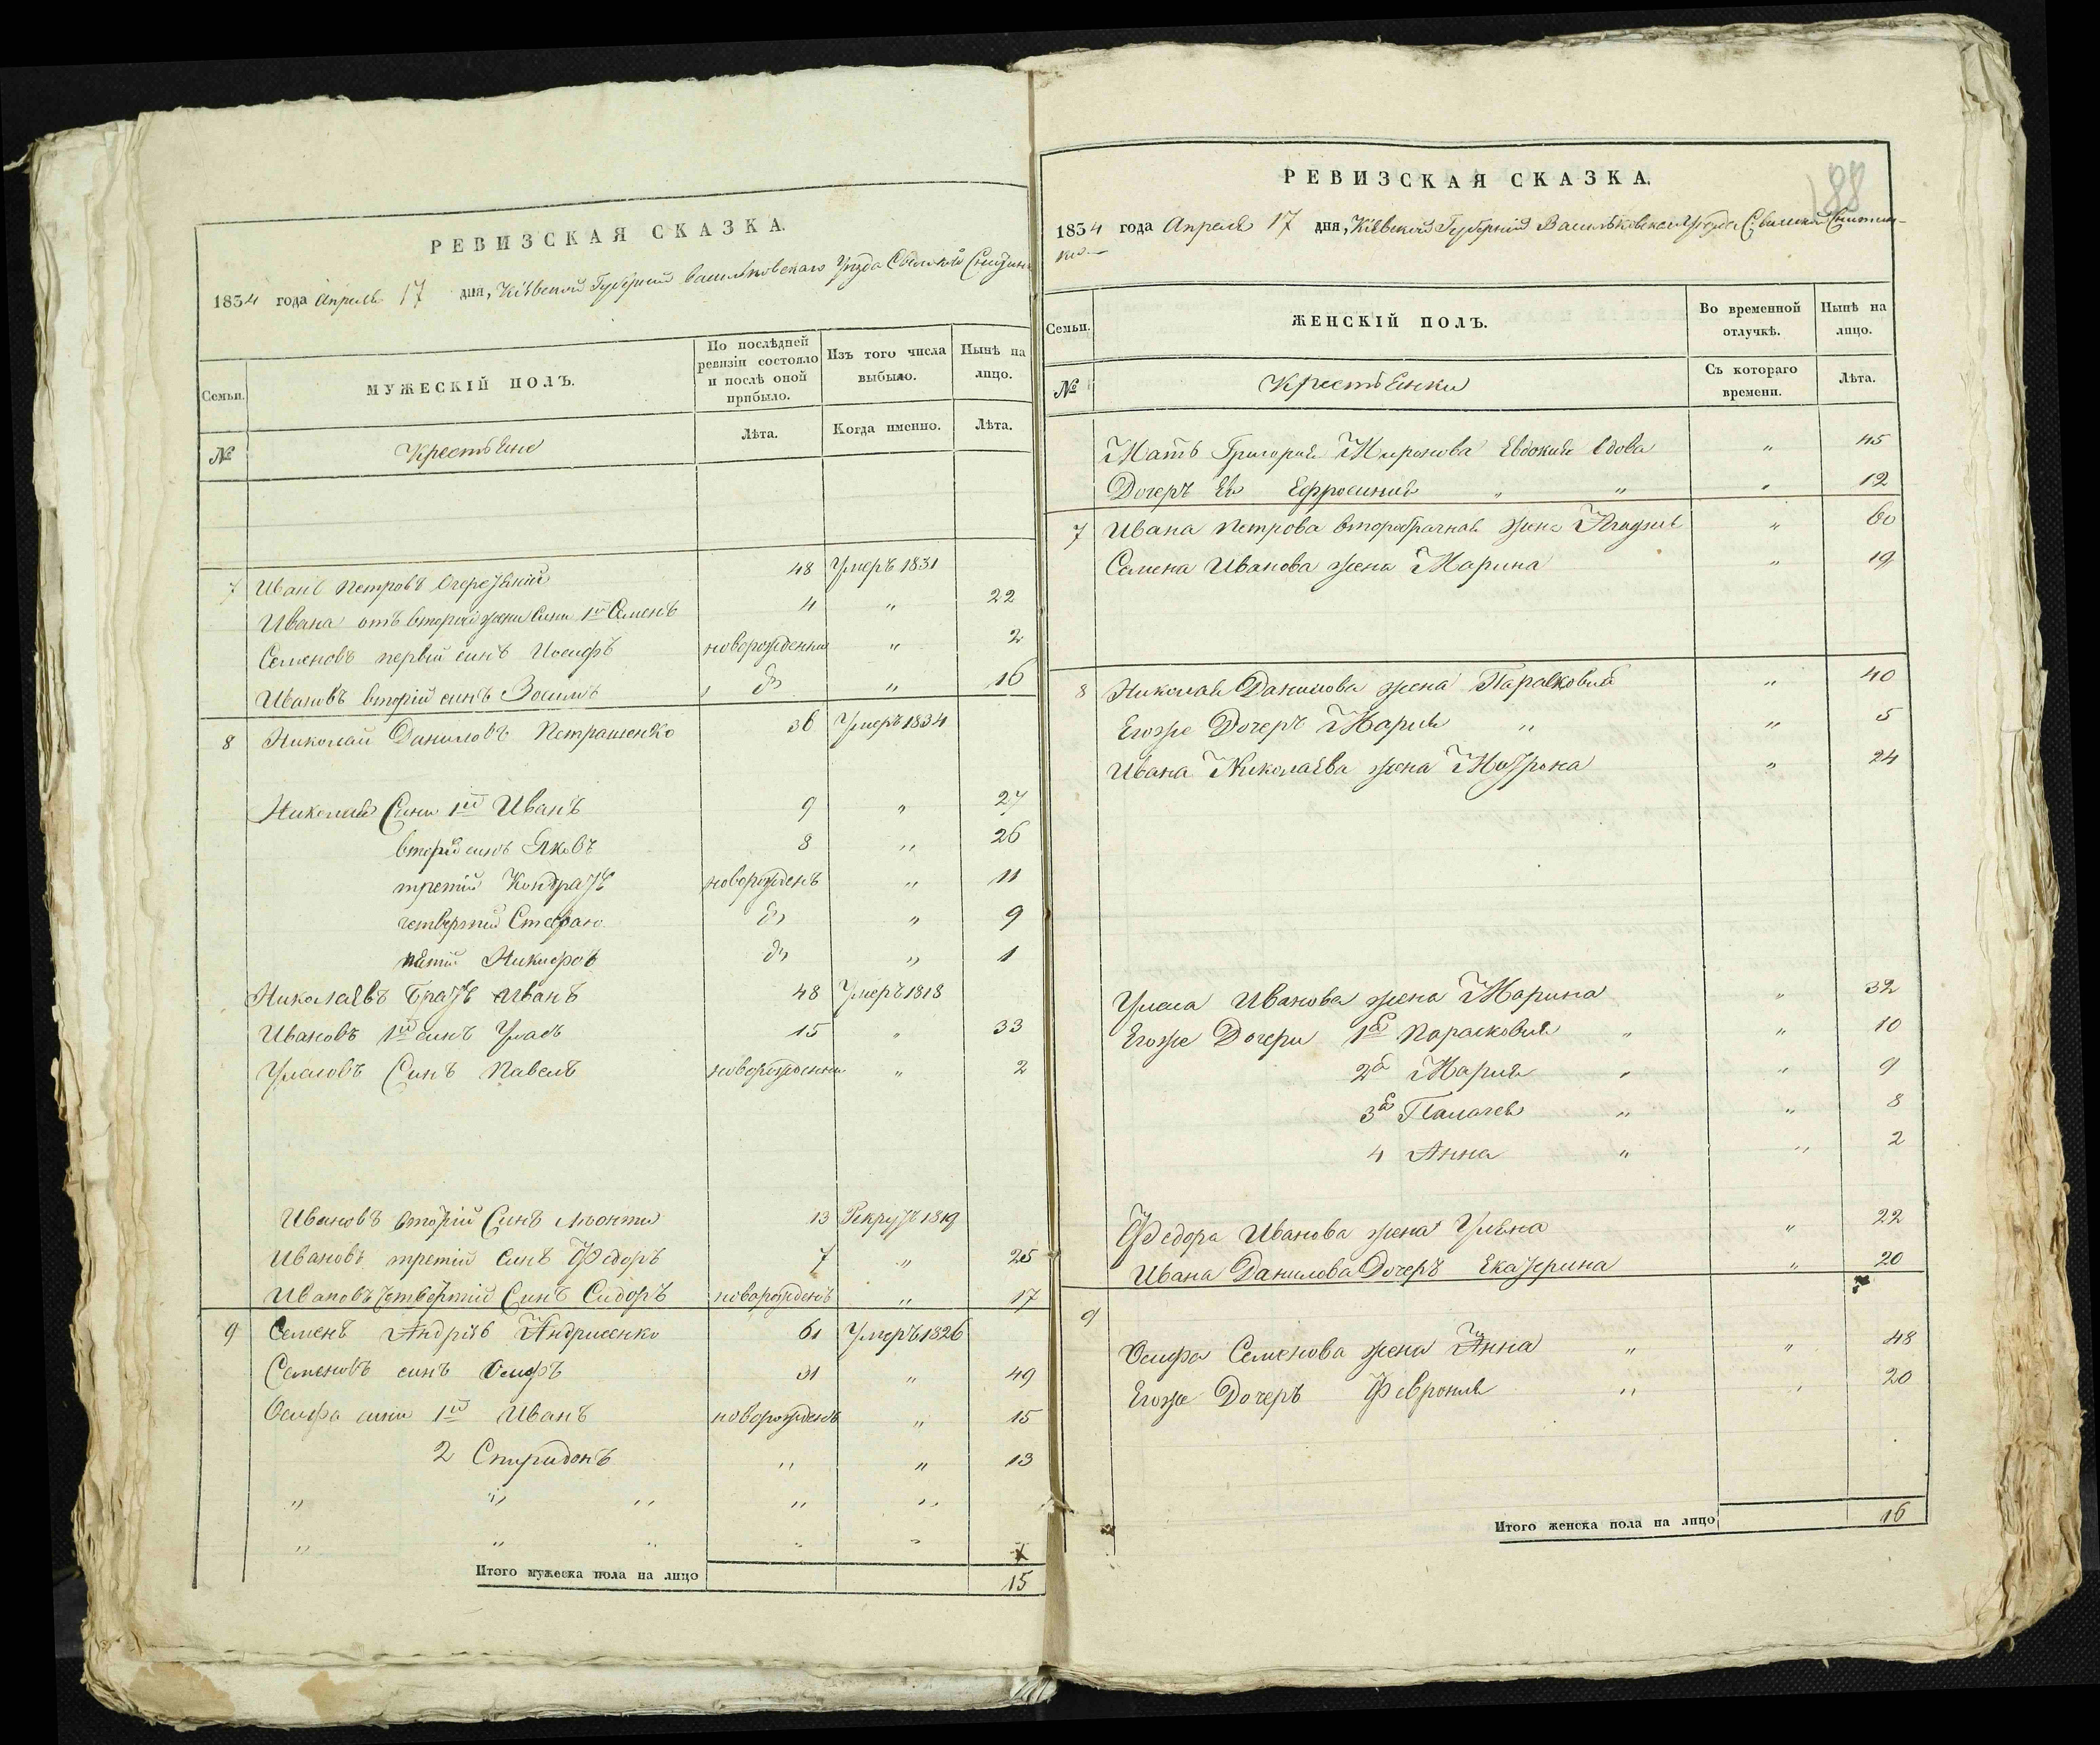 РЕВИЗСКАЯ СКАЗКА.
1834 года Апреля 17 дня, Кіевской Губерніи Васильковскаго Уезда
Семьи.
МУЖЕСКІЙ ПОЛЪ.
По послѣдней ревизіи состояло и послѣ оной прибыло.
Изъ того числа выбыло.
Нынѣ на лицо.
№
Крестьяне
Лѣта.
Когда именно.
Лѣта.
7 Иванъ Петровъ 48 Умеръ 1831
Ивана отъ второй жены Сини 1й Семенъ 4 " 22
Семеновъ первій синъ Иосифъ новорожденни " 2
Ивановъ вторій синъ Зосимъ до " 16
8 Николай Даниловъ Петрашенко 36 Умеръ 1834
Николая Сини 1й Иванъ 9 " 27
вторій синъ Яковъ 8 " 26
третій Кондратъ новорожденъ " 11
четвертій Стефанъ до " 9
пятій Никифоръ до " 1
Николаевъ Братъ Иванъ 48 Умеръ 1818
Ивановъ 1й синъ Уласъ 15 " 33
Уласовъ Синъ Павелъ новорожденни " 2
Ивановъ вторій Синъ Леонтій 13 Рекрутъ 1819
Ивановъ третій Синъ Федоръ 7 " 25
Ивановъ четвертій Синъ Сидоръ новорожденъ " 17
9 Семенъ Андріевъ Андриенко 61 Умеръ 1826
Семеновъ синъ Осифъ 31 " 49
Осифа сини 1й Иванъ новорожденъ " 15
2 Спиридонъ " " 13
" " " " "
" " " " "
Итого мужеска пола на лицо 15
188
РЕВИЗСКАЯ СКАЗКА.
1834 года Апреля 17 дня, Кіевской Губерніи Васильковскаго Уезда
ки
Семьи.
ЖЕНСКІЙ ПОЛЪ.
Во временной отлучкѣ.
Нынѣ на лицо.
№
Крестьянки
Съ котораго времени.
Лѣта.
Мать Григорія Миронова Евдокия вдова " 45
Дочеръ Ея Ефросиния " " " 12
7 Ивана Петрова второбрачная жена " 60
Семена Иванова жена Марина " 19
8 Николая Данилова жена Парасковия " 40
Егоже Дочеръ Мария " " 5
Ивана Николаева жена Матрона " 24
Уласа Иванова жена Марина " 32
Егоже Дочери 1а Парасковия " " 10
2а Мария " " 9
3а Палагея " " 8
4 Анна " " 2
Федора Иванова жена Уляна " 22
Ивана Данилова Дочеръ Екатерина " 20
9
Осифа Семенова жена Анна " " 48
Егоже Дочеръ Феврония " " 20
Итого женска пола на лицо 16